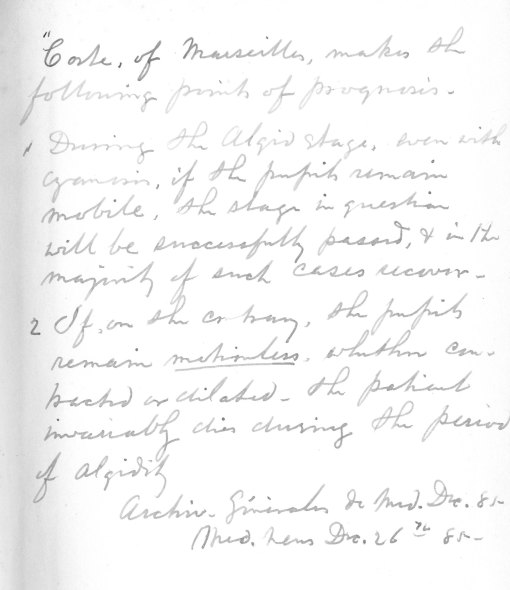 "Coste, of Marseilles, makes the
following points of prognosis -
1 During the Algid stage, even with
cyanosis, if the pupils remain
mobile, the stage in question
will be successfully passed, & in the
majority of such cases recover -
2 If, on the contrary, the pupils
remain motionless, whether con-
tracted or dilated - the patient
invariably dies during the period
of algidity
Archiv. Générales de Med. Dec. 85 -
Med. News Dec. 26th 85 -